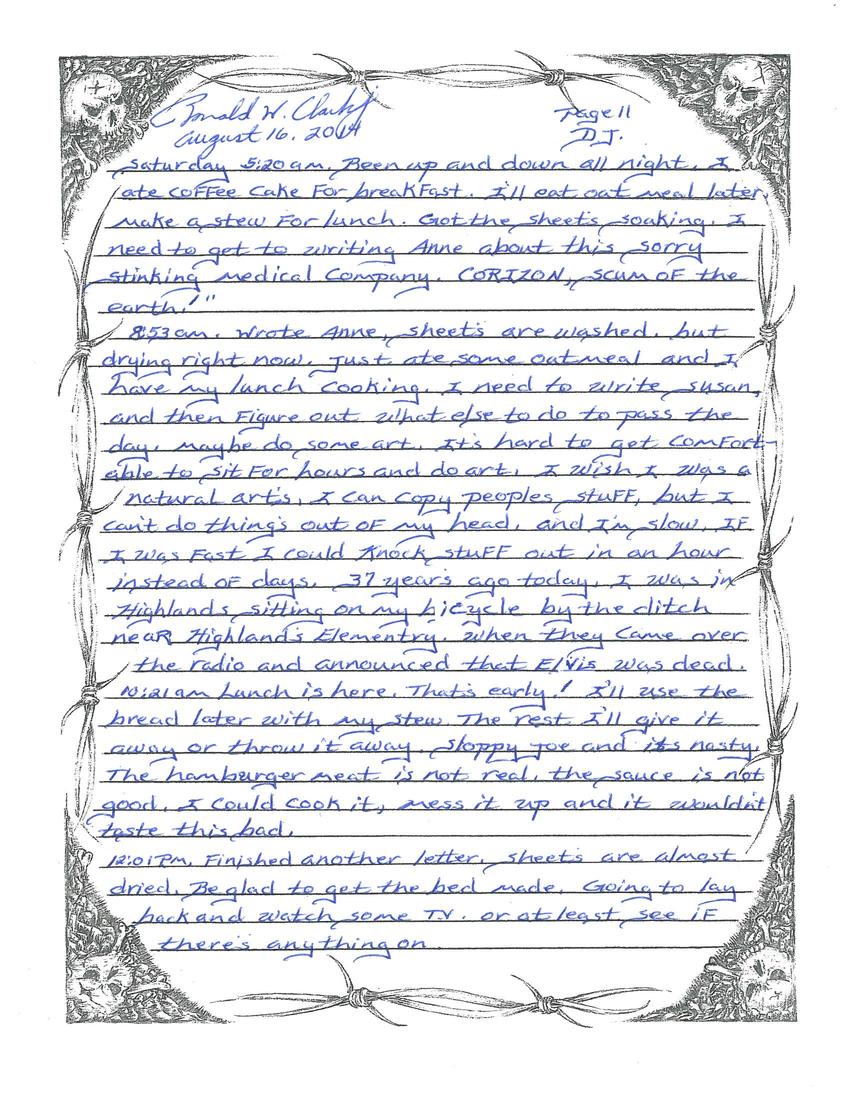 Ronald W. Clark jr
August 16, 2014
Page 11
D.J.
Saturday 5:20 am. Been up and down all night. I
ate coffee cake for breakfast. I'll eat oat meal later,
make a stew for lunch. Got the sheets soaking. I
need to get to writing Anne about this sorry
stinking medical company. CORIZON, scum of the
earth!"
8:53 am. Wrote Anne, sheets are washed, but
drying right now. Just ate some oatmeal and I
have my lunch cooking. I need to write susan,
and then figure out what else to do to pass the
day. maybe do some art. It's hard to get comfort-
able to sit for hours and do art. I wish I was a
natural artis, I can copy peoples stuff, but I
can't do thing's out of my head, and I'm slow. If
I was fast I could knock stuff out in an hour
instead of days. 37 years ago today, I was in
Highlands sitting on my bicycle by the ditch
near Highland's Elementry. When they came over
the radio and announced that Elvis was dead.
10:21 am Lunch is here. That's early! I'll use the
bread later with my stew. The rest I'll give it
away or throw it away. Sloppy joe and its nasty.
The hamburger meat is not real, the sauce is not
good. I could cook it, mess it up and it wouldn't
taste this bad.
12:01 Pm. Finished another letter. sheets are almost
dried. Be glad to get the bed made. Going to lay
back and watch some T.V. or at least see if
there's anything on.